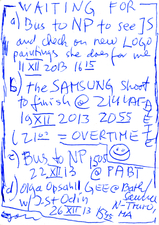 WAITING FOR
a) Bus to NP to see JS
and check on new LOGO
paintings she does for me
11 XII 2013 1615
b) the SAMSUNG shoot
to finish @ 214 LAFAYETTE
19 XII 2013 2055
(2100 = OVERTIME)
c) Bus to NP 1505
22 XII 13 @ PABT
d) Olga Opsahl GEE @ Bath/
w/ 2st Odin
N-Truro, MA
26 XII 13 1555